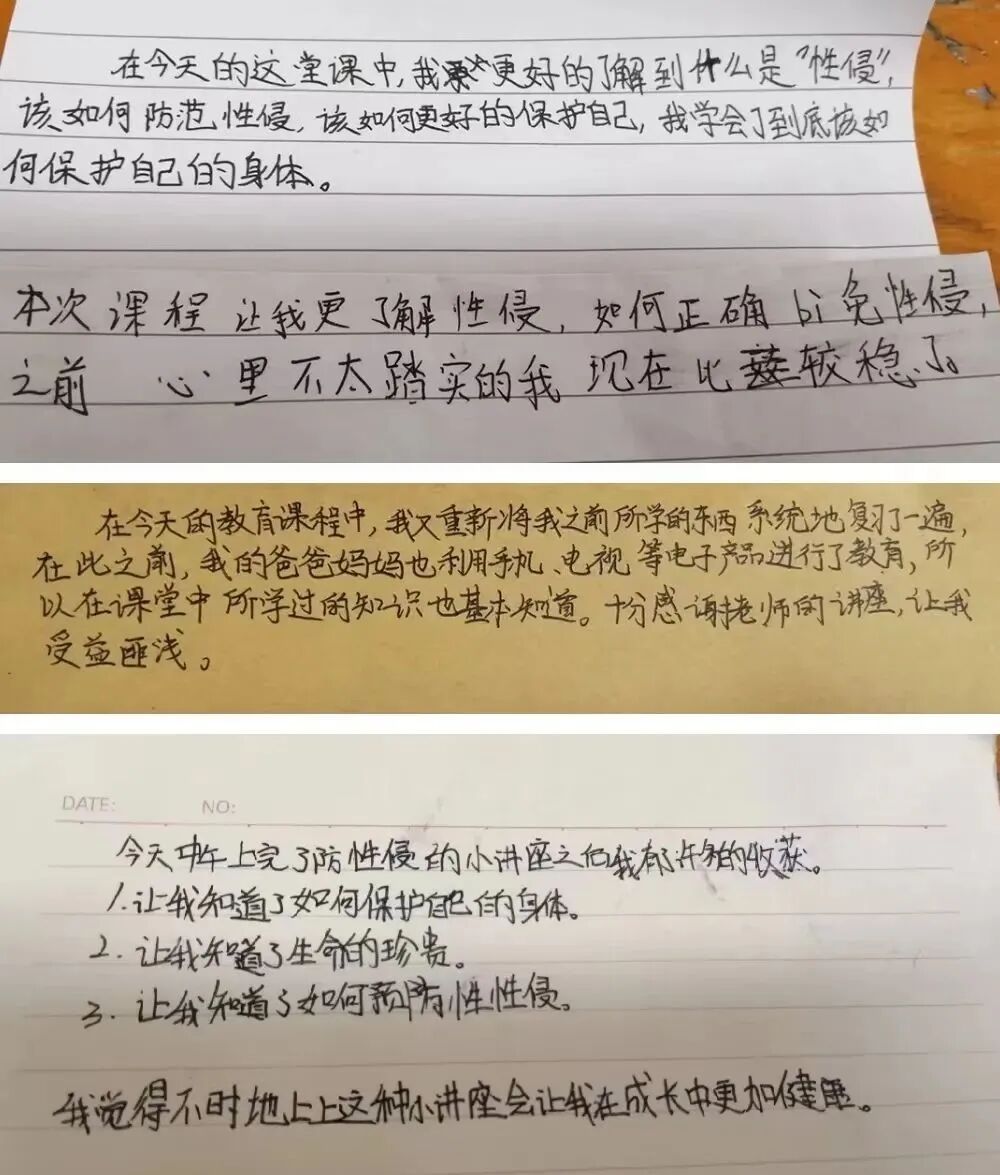 在今天的这堂课中，我更好的了解到什么是“性侵”，
该如何防范性侵，该如何更好的保护自己，我学会了到底该如
何保护自己的身体。
本次课程让我更了解性侵，如何正确bì免性侵，
之前 心里不太踏实的我 现在比较稳了。
在今天的教育课程中，我又重新将我之前所学的东西系统地复习了一遍，
在此之前，我的爸爸妈妈也利用手机、电视等电子产品进行了教育，所
以在课堂中所学过的知识也基本知道。十分感谢老师的讲座，让我
受益匪浅。
DATE: NO:
今天中午上完了防性侵的小讲座之后我有许多的收获。
1.让我知道了如何保护自己的身体。
2.让我知道了生命的珍贵。
3.让我知道了如何预防性性侵。
我觉得不时地上上这种小讲座会让我在成长中更加健康。